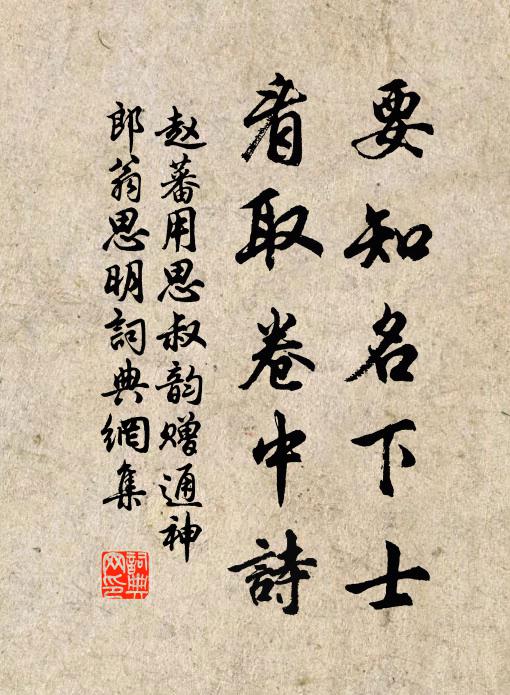 要知名下士
看取卷中詩
赵蕃用思叔韵赠通神
郎翁思明詞典網集
詞典
网印